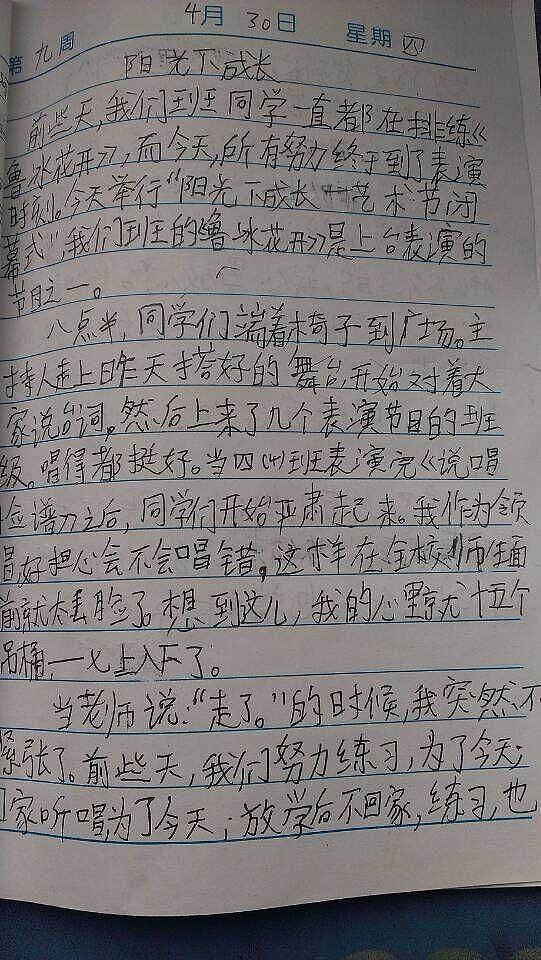 第九周 4月30日 星期四
阳光下成长
前些天,我们班同学一直都在排练《
鲁冰花开》,而今天,所有努力终于到了表演
时刻。今天举行“阳光下成长——艺术节闭
幕式”,我们班的《鲁冰花开》是上台表演的
节目之一。
八点半,同学们端着椅子到广场。主
持人走上昨天搭好的舞台,开始对着大
家说台词。然后上来了几个表演节目的班
级。唱得都挺好。当四(4)班表演完《说唱
脸谱》之后,同学们开始严肃起来。我作为领
唱,好担心会不会唱错,这样在全校师生面
前就太丢脸了。想到这儿,我的心里就十五个
吊桶,一七上八下了。
当老师说:“走了。”的时候,我突然不
紧张了。前些天,我们努力练习,为了今天;
家听唱,为了今天;放学后不回家,练习,也